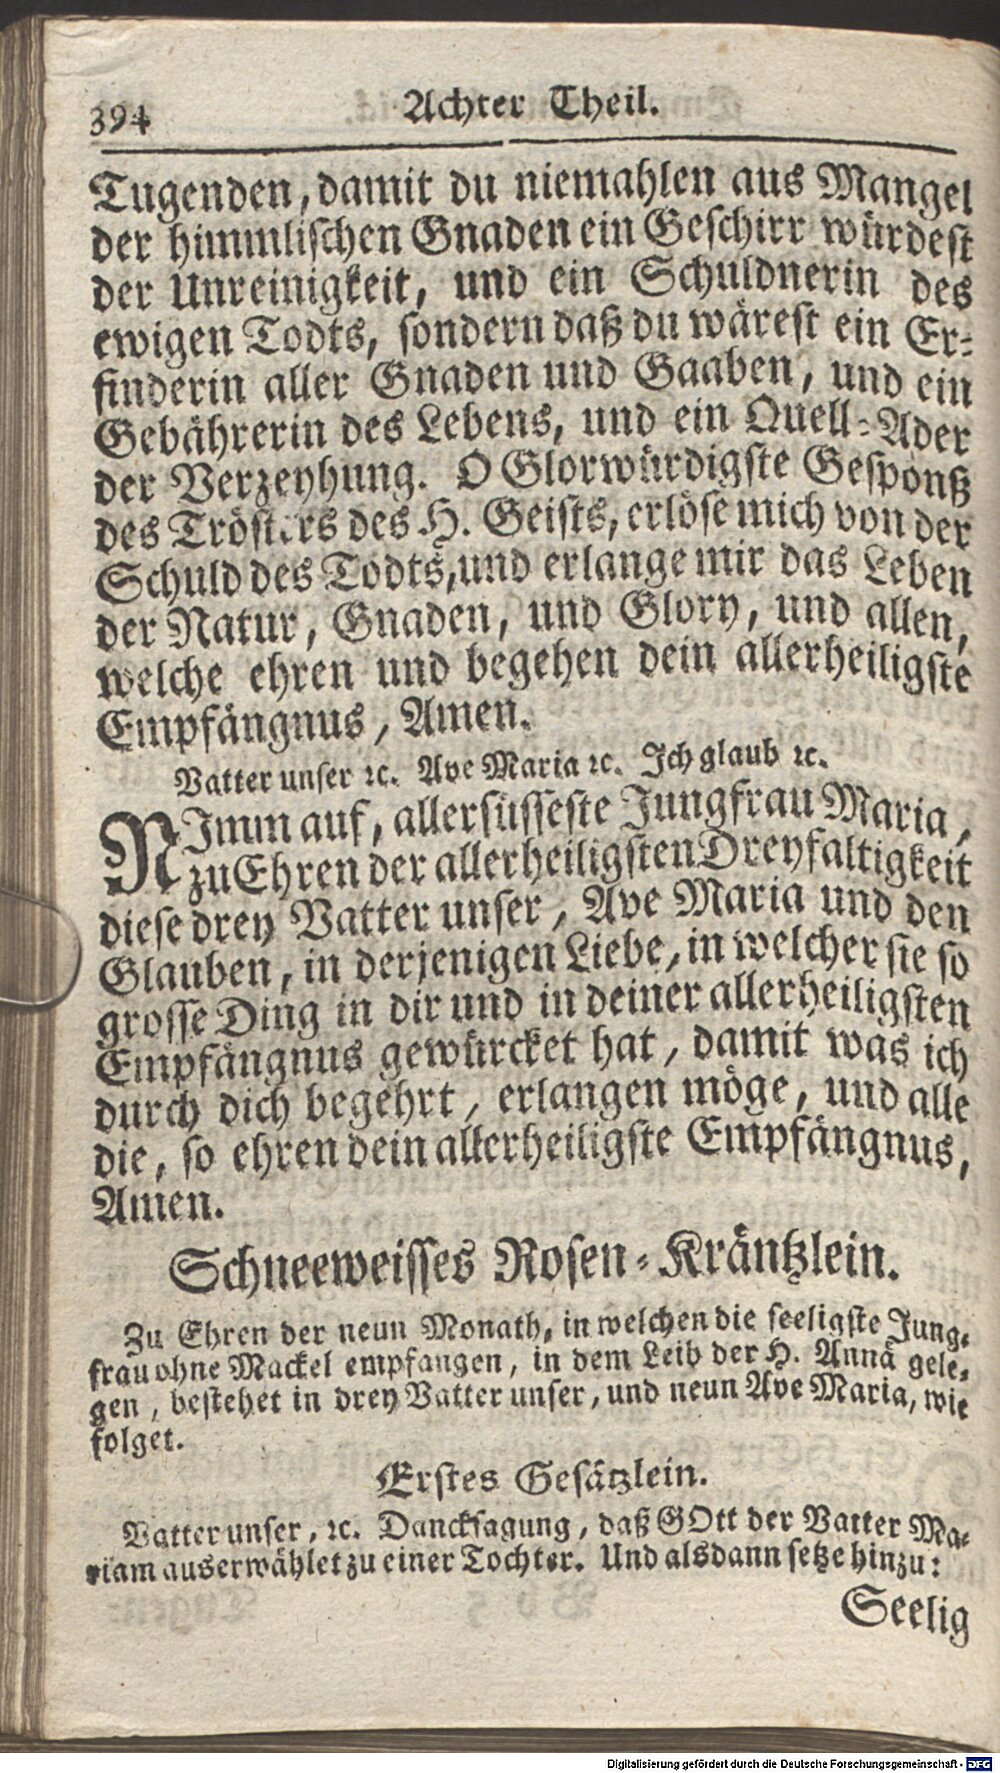 394
Achter Theil.
Tugenden, damit du niemahlen aus Mangel
der himmlischen Gnaden ein Geschirr würdest
der Unreinigkeit, und ein Schuldnerin des
ewigen Todts, sondern daß du wärest ein Er-
finderin aller Gnaden und Gaaben, und ein
Gebährerin des Lebens, und ein Quell-Ader
der Verzeyhung. O Glorwürdigste Gesponß
des Trösters des H. Geists, erlöse mich von der
Schuld des Todts, und erlange mir das Leben
der Natur, Gnaden, und Glory, und allen,
welche ehren und begehen dein allerheiligste
Empfängnus, Amen.
Vatter unser ꝛc. Ave Maria ꝛc. Ich glaub ꝛc.
NImm auf, allersüsseste Jungfrau Maria,
zu Ehren der allerheiligsten Dreyfaltigkeit
diese drey Vatter unser, Ave Maria und den
Glauben, in derjenigen Liebe, in welcher sie so
grosse Ding in dir und in deiner allerheiligsten
Empfängnus gewürcket hat, damit was ich
durch dich begehrt, erlangen möge, und alle
die, so ehren dein allerheiligste Empfängnus,
Amen.
Schneeweisses Rosen-Kräntzlein.
Zu Ehren der neun Monath, in welchen die seeligste Jung-
frau ohne Mackel empfangen, in dem Leib der H. Annä gele-
gen, bestehet in drey Vatter unser, und neun Ave Maria, wie
folget.
Erstes Gesätzlein.
Vatter unser, ꝛc. Dancksagung, daß GOtt der Vatter Ma-
riam auserwählet zu einer Tochter. Und alsdann setze hinzu:
Seelig
Digitalisierung gefördert durch die Deutsche Forschungsgemeinschaft - DFG